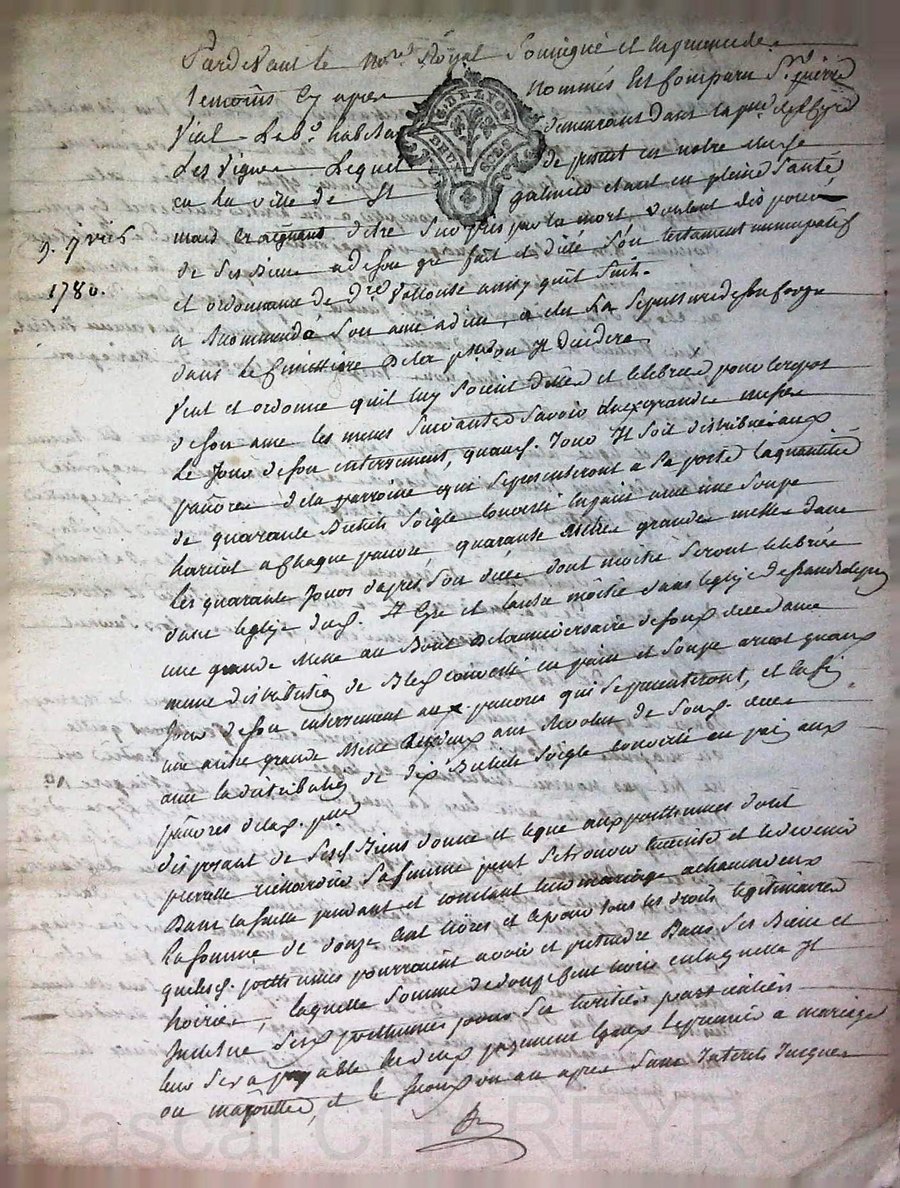 Pardevant le no.re Royal Soussigné et en presence de
temoins cy apres nommés est comparu Sr pierre
Vial Lab.r habitant demeurant dans la p.sse de
Les Vignes Lequel de present en notre etude
en la ville de St galmier etant en pleine Santé
mais craignant d'être Surpris par la mort, voulant disposer
9. 7bres
de Ses Biens a de Son gré fait et dicté Son testament nuncupatif
1780.
et ordonnance de d.re Vollonté ainsy quil Suit.
a Recommandé Son ame a dieu, a elu Sa Sepulture de Son Corps
dans le Cimettiere de la p.sse ou Il decedera
Veut et ordonne quil luy Soient dittes et celebrées pour le repos
de Son ame les messes Suivantes Savoir une grande messe
Le Jour de Son enterrement, auquel Jour Il Soit distribué aux
pauvres de la parroisse qui Se presenteront a Sa porte la quantité
de quarante Bichets Soigle convertis en pain avec une Soupe
haricot a Chaque pauvre quarante autres grandes messes dans
les quarante Jours d'apres Son décés dont moitié Seront celebrées
dans leglise dud. St Cyr et lautre moitié dans leglise de
une grande Messe au Bout de lanniversaire de Son deces avec
meme distribution de Bled converti en pain et Soupe aricot quaux
Jour de Son enterrement aux pauvres qui Se presenteront, et enfin
une autre grande Messe deux ans Revolus de Son d. deces
avec la distribution de dix Bichets Soigle convertis en pain aux
pauvres de la d. p.sse
disposant de Sesd. Biens donne et legue aux posthumes dont
pierrette Richardier Sa femme peut Se trouver enceinte et le devenir
Dans la Suitte pendant et constant leur mariage a chacun deux
La Somme de douze cent livres et ce pour tous les droits legitimaires
quelesd. posthumes pourroient avoir et pretendre Dans Ses Biens et
hoirie, laquelle Somme de douze Cent livres en laquelle Il
Institue Sesd. posthumes pour Ses heritiers particuliers
leur Sera payable en deux payements egaux le premier a mariage
ou majorité, et le Second un an apres Sans Interets Jusques
Pascal CHAREYRON